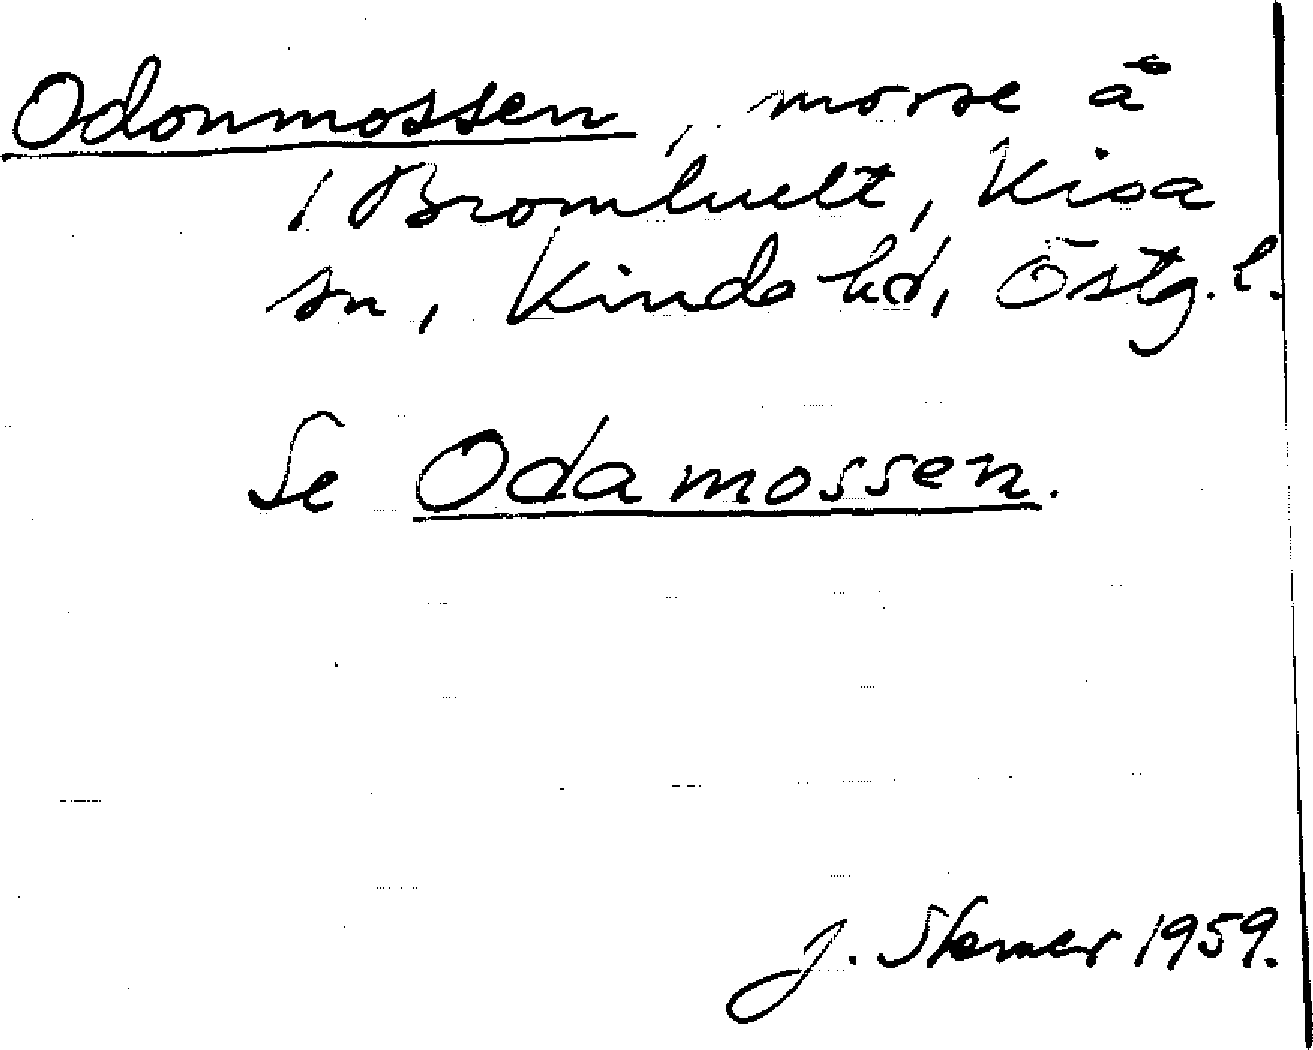 Odonmossen, mosse å
/ Bromhult, Kisa
sn, Kinda hd, Östg. l.
Se Odamossen.
J. Sterner 1959.